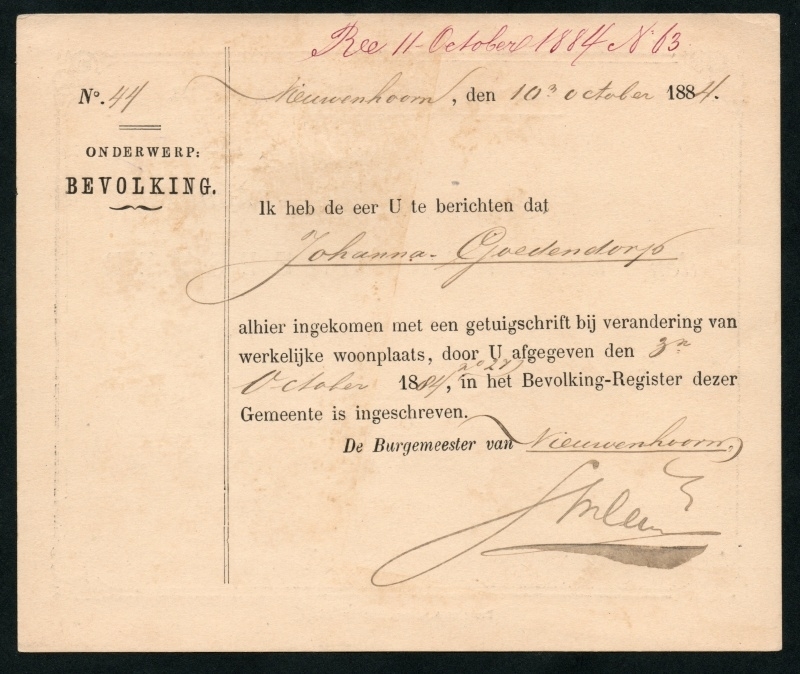 Rec 11 October 1884 N 63
No. 44
Nieuwenhoorn, den 10n October 1884.
ONDERWERP:
BEVOLKING.
Ik heb de eer U te berichten dat
Johanna Goedendorp
alhier ingekomen met een getuigschrift bij verandering van
werkelijke woonplaats, door U afgegeven den 3n
October 1884, in het Bevolking-Register dezer
Gemeente is ingeschreven.
De Burgemeester van Nieuwenhoorn,